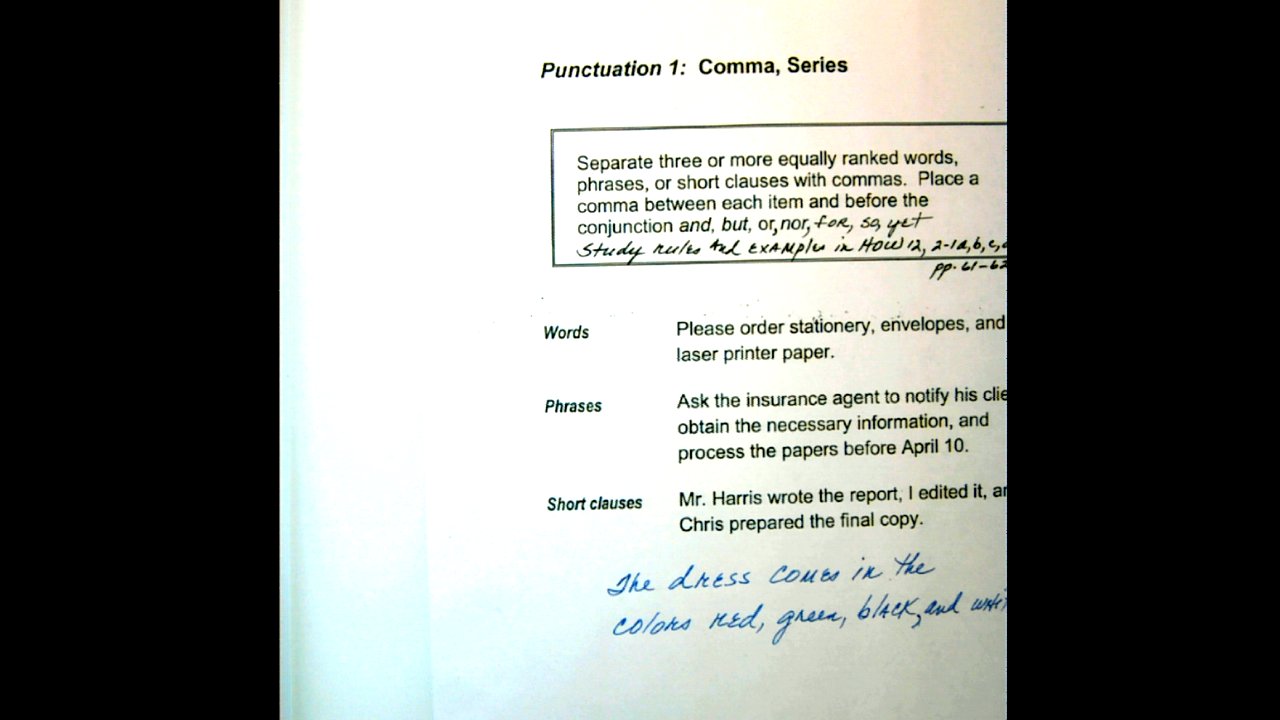 Punctuation 1: Comma, Series
Separate three or more equally ranked words,
phrases, or short clauses with commas. Place a
comma between each item and before the
conjunction and, but, or, nor, for, so, yet
Study rules and examples in HOW 12, 2-1a, b, c,
pp. 61-62
Words
Please order stationery, envelopes, and
laser printer paper.
Phrases
Ask the insurance agent to notify his clie
obtain the necessary information, and
process the papers before April 10.
Short clauses
Mr. Harris wrote the report, I edited it, an
Chris prepared the final copy.
The dress comes in the
colors red, green, black, and whi